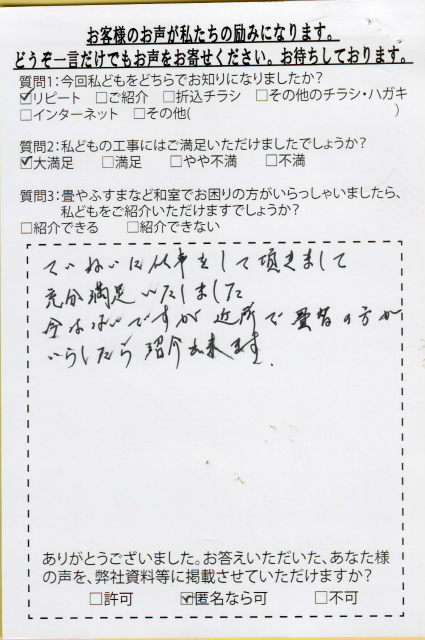 お客様のお声が私たちの励みになります。
どうぞ一言だけでもお声をお寄せください。お待ちしております。
質問1:今回私どもをどちらでお知りになりましたか?
☑リピート □ご紹介 □折込チラシ □その他のチラシ・ハガキ
□インターネット □その他( )
質問2:私どもの工事にはご満足いただけましたでしょうか?
☑大満足 □満足 □やや不満 □不満
質問3:畳やふすまなど和室でお困りの方がいらっしゃいましたら、
私どもをご紹介いただけますでしょうか?
□紹介できる □紹介できない
ていねいに仕事をして頂きまして
充分満足いたしました
今はないですが近所で の方が
いらしたら紹介出来ます.
ありがとうございました。お答えいただいた、あなた様
の声を、弊社資料等に掲載させていただけますか?
□許可 ☑匿名なら可 □不可